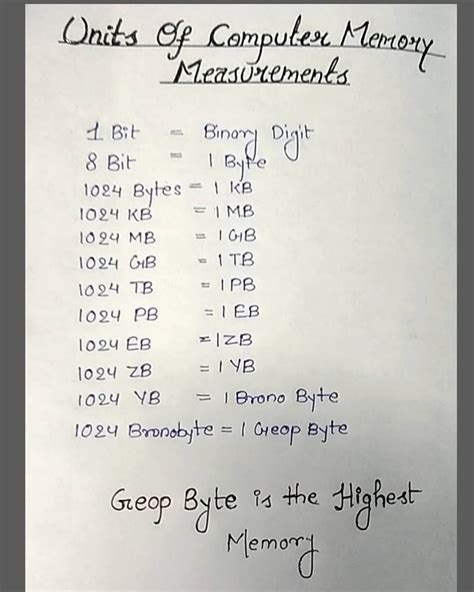 Units Of Computer Memory
Measurements
1 Bit = Binary Digit
8 Bit = 1 Byte
1024 Bytes = 1 KB
1024 KB = 1 MB
1024 MB = 1 GB
1024 GB = 1 TB
1024 TB = 1 PB
1024 PB = 1 EB
1024 EB = 1 ZB
1024 ZB = 1 YB
1024 YB = 1 Brono Byte
1024 Bronobyte = 1 Geop Byte
Geop Byte is the Highest
Memory